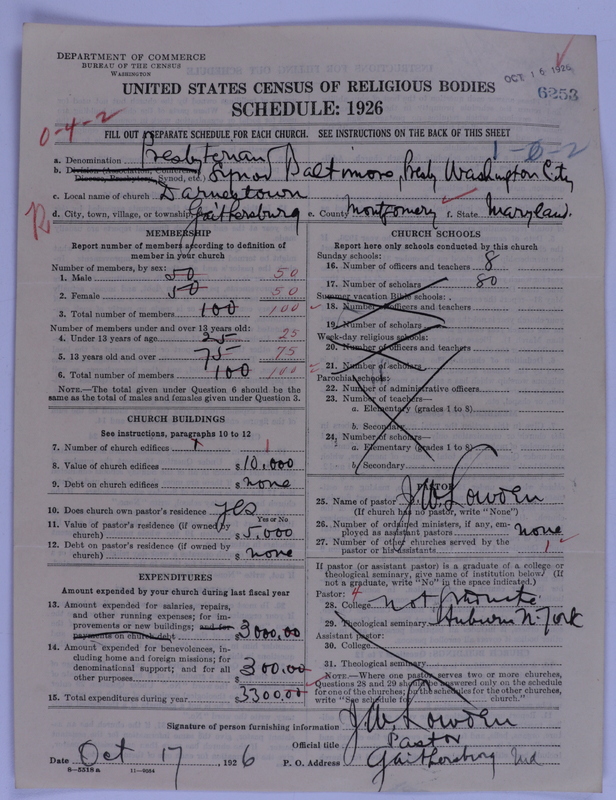 DEPARTMENT OF COMMERCE
BUREAU OF THE CENSUS
WASHINGTON
OCT 16 1926
6253
UNITED STATES CENSUS OF RELIGIOUS BODIES
SCHEDULE: 1926
0-4-2
FILL OUT SEPARATE SCHEDULE FOR EACH CHURCH. SEE INSTRUCTIONS ON THE BACK OF THIS SHEET
1-0-2
a. Denomination Presbyterian
b. Division (Association, Conference, Diocese, Presbytery, Synod, etc.) Synod Baltimore, Presby Washington City
c. Local name of church Darnestown
d. City, town, village, or township Gaithersburg e. County Montgomery f. State Maryland.
MEMBERSHIP
Report number of members according to definition of
member in your church
Number of members, by sex:
1. Male 50 50
2. Female 50 50
3. Total number of members 100 100
Number of members under and over 13 years old:
4. Under 13 years of age 25 25
5. 13 years old and over 75 75
6. Total number of members 100 100
NOTE.—The total given under Question 6 should be the
same as the total of males and females given under Question 3.
CHURCH BUILDINGS
See instructions, paragraphs 10 to 12
7. Number of church edifices 1 1
8. Value of church edifices $10,000
9. Debt on church edifices $none
10. Does church own pastor's residence yes
Yes or No
11. Value of pastor's residence (if owned by
church) $5,000
12. Debt on pastor's residence (if owned by
church) $none
EXPENDITURES
Amount expended by your church during last fiscal year
13. Amount expended for salaries, repairs,
and other running expenses; for im-
provements or new buildings; and for
payments on church debt $3000.00
14. Amount expended for benevolences, in-
cluding home and foreign missions; for
denominational support; and for all
other purposes $300.00
15. Total expenditures during year $3300.00
CHURCH SCHOOLS
Report here only schools conducted by this church
Sunday schools:
16. Number of officers and teachers 8
17. Number of scholars 80
Summer vacation Bible schools:
18. Number of officers and teachers
19. Number of scholars
Week-day religious schools:
20. Number of officers and teachers
21. Number of scholars
Parochial schools:
22. Number of administrative officers
23. Number of teachers—
a. Elementary (grades 1 to 8)
b. Secondary
24. Number of scholars—
a. Elementary (grades 1 to 8)
b. Secondary
PASTOR
25. Name of pastor J. W. Lowden
(If church has no pastor, write "None")
26. Number of ordained ministers, if any, em-
ployed as assistant pastors none
27. Number of other churches served by the
pastor or his assistants 1
If pastor (or assistant pastor) is a graduate of a college or
theological seminary, give name of institution below. (If
not a graduate, write "No" in the space indicated.)
Pastor: 4
28. College not graduate
29. Theological seminary Auburn N. York
Assistant pastor:
30. College
31. Theological seminary
NOTE.—Where one pastor serves two or more churches,
Questions 28 and 29 should be answered only on the schedule
for one of the churches; on the schedules for the other churches,
write "See schedule for church."
Signature of person furnishing information J. W. Lowden
Official title Pastor
Date Oct 17, 1926 P. O. Address Gaithersburg Md
8-5518a 11-9054